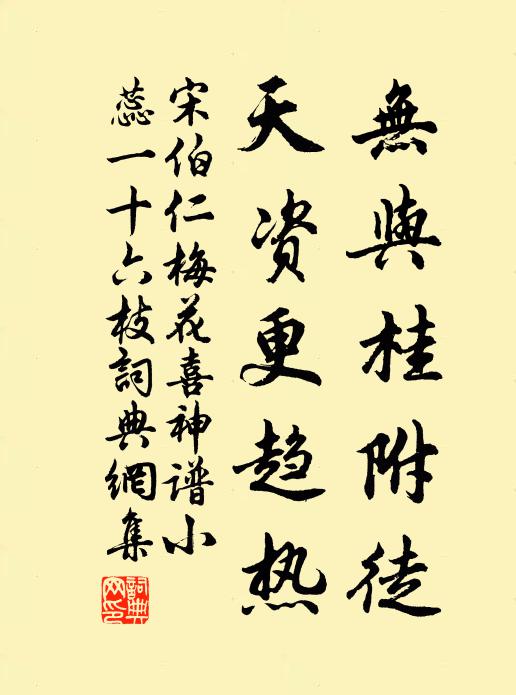 無與桂附徒
天资更趋热
宋伯仁梅花喜神谱小
蕊一十六枝詞典網集
詞典网印